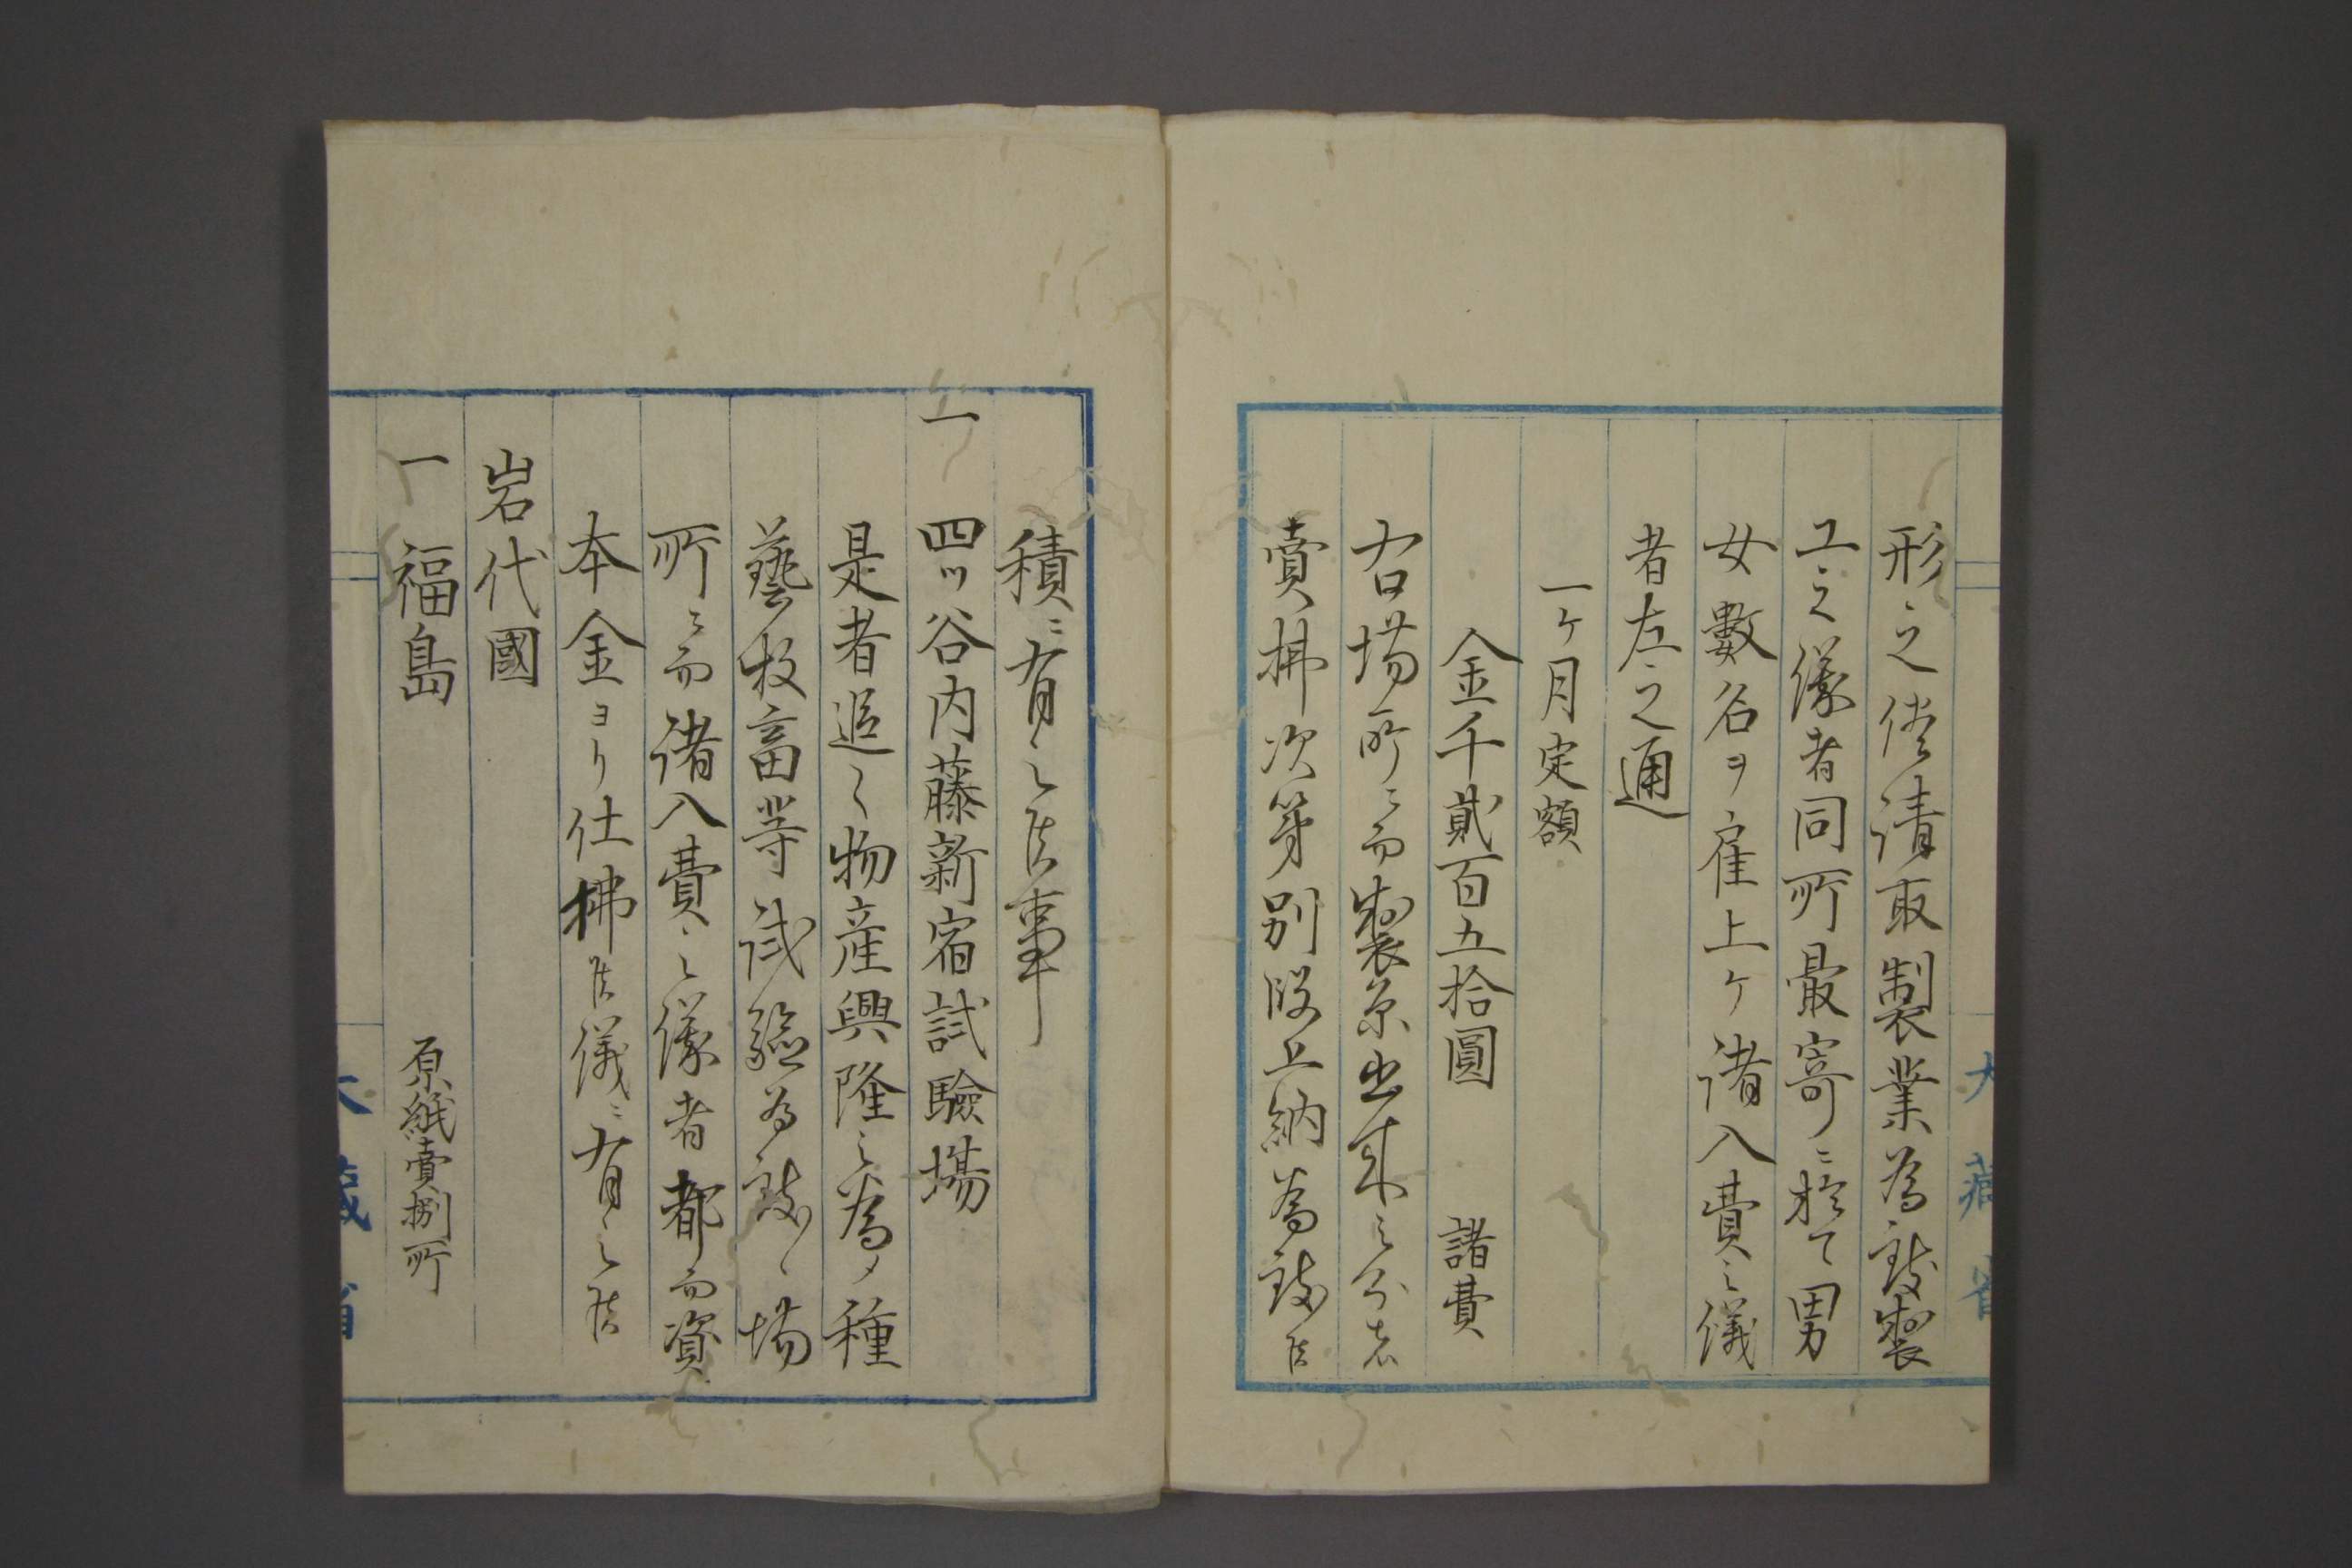 形之侭請取製業為致製
工之儀者同所最寄ニ於て男
女數名ヲ雇上ケ諸入費之儀
者左之通
一ケ月定額
金千貳百五拾圓 諸費
右場所ニ而製糸出来之分者
賣拂次第別段上納為致候
積ニ有之候事
一 四ッ谷内藤新宿試驗場
是者追々物産興隆之為メ種
藝牧畜等試驗為致候場
所ニ而諸入費之儀者都而資
本金ヨリ仕拂候儀ニ有之候
岩代國
一 福島 原紙賣捌所
大藏省